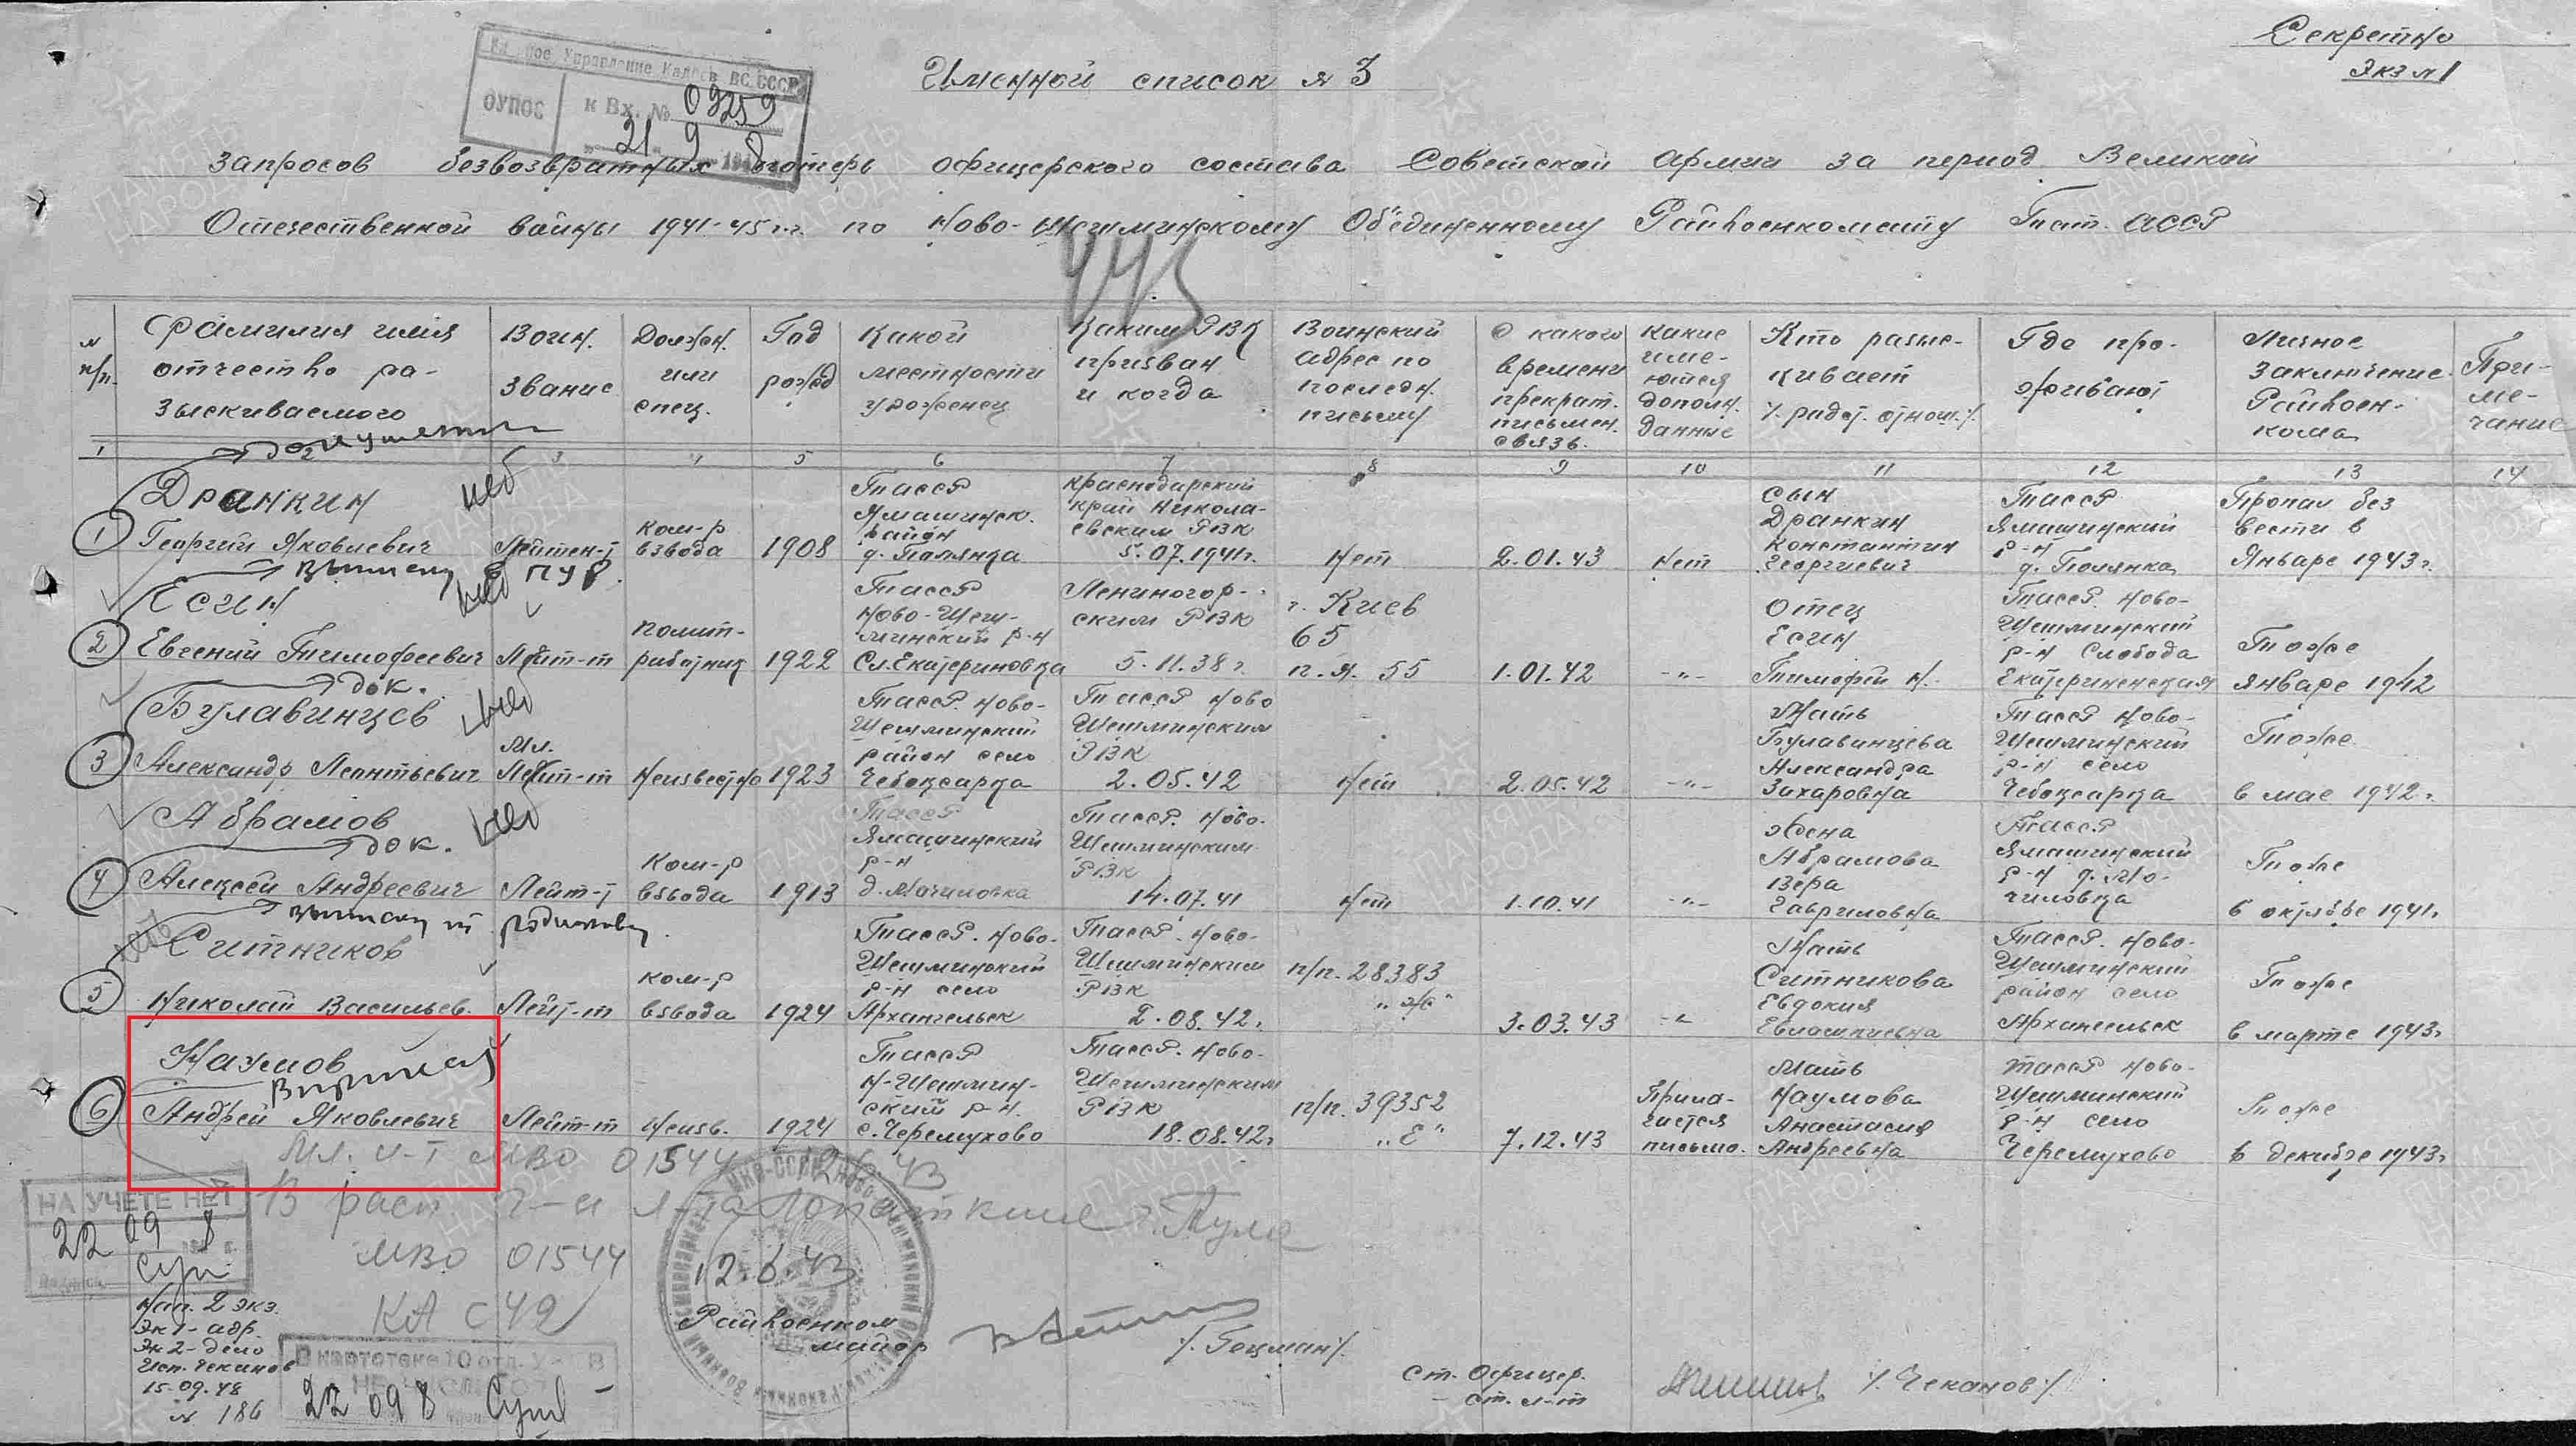 Секретно
Экз №1
Именной список № 3
Главное Управление Кадров ВС СССР
ОУПОС
к Вх. № 09259
21 9 1948
запросов безвозвратных потерь офицерского состава Советской Армии за период Великой
Отечественной войны 1941-45 г.г. по Ново-Шешминскому Объединенному Райвоенкомату Тат. АССР
№ п/п.
Фамилия имя отчество разыскиваемого
Воин. звание
Должн. или спец.
Год рожд
Какой местности уроженец
Каким РВК призван и когда
Воинский адрес по последн. письму
С какого времени прекрат. письмен. связь.
Какие имеются дополн. данные
Кто разыскивает /. родст. отнош./.
Где проживают
Личное заключение Райвоенкома
Примечание
1 3 4 5 6 7 8 9 10 11 12 13 14
1 Дранкин Георгий Яковлевич
Лейтен-т
ком-р взвода
1908
ТАССР Ямашинск. район д. Полянка
Краснодарский край Николаевским РВК 5.07.1941г.
Нет
2.01.43
Нет
сын Дранкин Константин Георгиевич
ТАССР Ямашинский р-н д. Полянка
Пропал без вести в Январе 1943г.
выписку в ПУР.
2 Есин Евгений Тимофеевич
Лейт-т
полит-работник
1922
ТАССР Ново-Шешминский р-н Сл. Екатериновка
Лениногорским РВК 5.11.38г
г. Киев 65 п.я. 55
1.01.42
-"-
Отец Есин Тимофей И.
ТАССР Ново-Шешминский р-н Слобода Екатериненская
Тоже январе 1942
док.
3 Булавинцев Александр Леонтьевич
Мл. Лейт-т
Неизвестно
1923
ТАССР Ново-Шешминский район село Чебоксарка
ТАССР Ново Шешминским РВК 2.05.42
Нет
2.05.42
-"-
Мать Булавинцева Александра Захаровна
ТАССР Ново-Шешминский р-н село Чебоксарка
Тоже в мае 1942г.
4 Абрамов Алексей Андреевич
док.
Лейт-т
Ком-р взвода
1913
ТАССР Ямашинский р-н д. Мочиловка
ТАССР. Ново-Шешминским РВК 14.07.41
Нет
1.10.41
-"-
Жена Абрамова Вера Гавриловна
ТАССР Ямашинский р-н д. Мочиловка
Тоже в октябре 1941г
5 Ситников Николай Васильев.
Лейт-т
ком-р взвода
1924
ТАССР. Ново-Шешминский р-н село Архангельск
ТАССР. Ново-Шешминским РВК 2.08.42г
п/п. 28383 "Ж"
3.03.43
-"-
Мать Ситникова Евдокия
ТАССР. Ново-Шешминский район село Архангельск
Тоже в марте 1943г
6 Наумов Андрей Яковлевич
Лейт-т
Неизв.
1924
ТАССР Н-Шешминский р-н. с. Черемухово
ТАССР. Ново-Шешминским РВК 18.08.42г
п/п. 39352 "Е"
7.12.43
Прилагается письмо.
Мать Наумова Анастасия Андреевна
ТАССР Ново-Шешминский р-н село Черемухово
Тоже в декабре 1943г
МВО 01544
В расп.
Тула
МВО 01544
12.6.43
НА УЧЕТЕ НЕТ
22 09 8
КА с 42
Нап. 2 экз.
Эк 1 - адр.
Эк 2 - дело
Исп. Чеканов
15.09.48
№ 186
22 09 8
Райвоенком
майор
/. Гецман/.
Ст. Офицер.
ст. л-т
/. Чеканов/.
ПАМЯТЬ НАРОДА